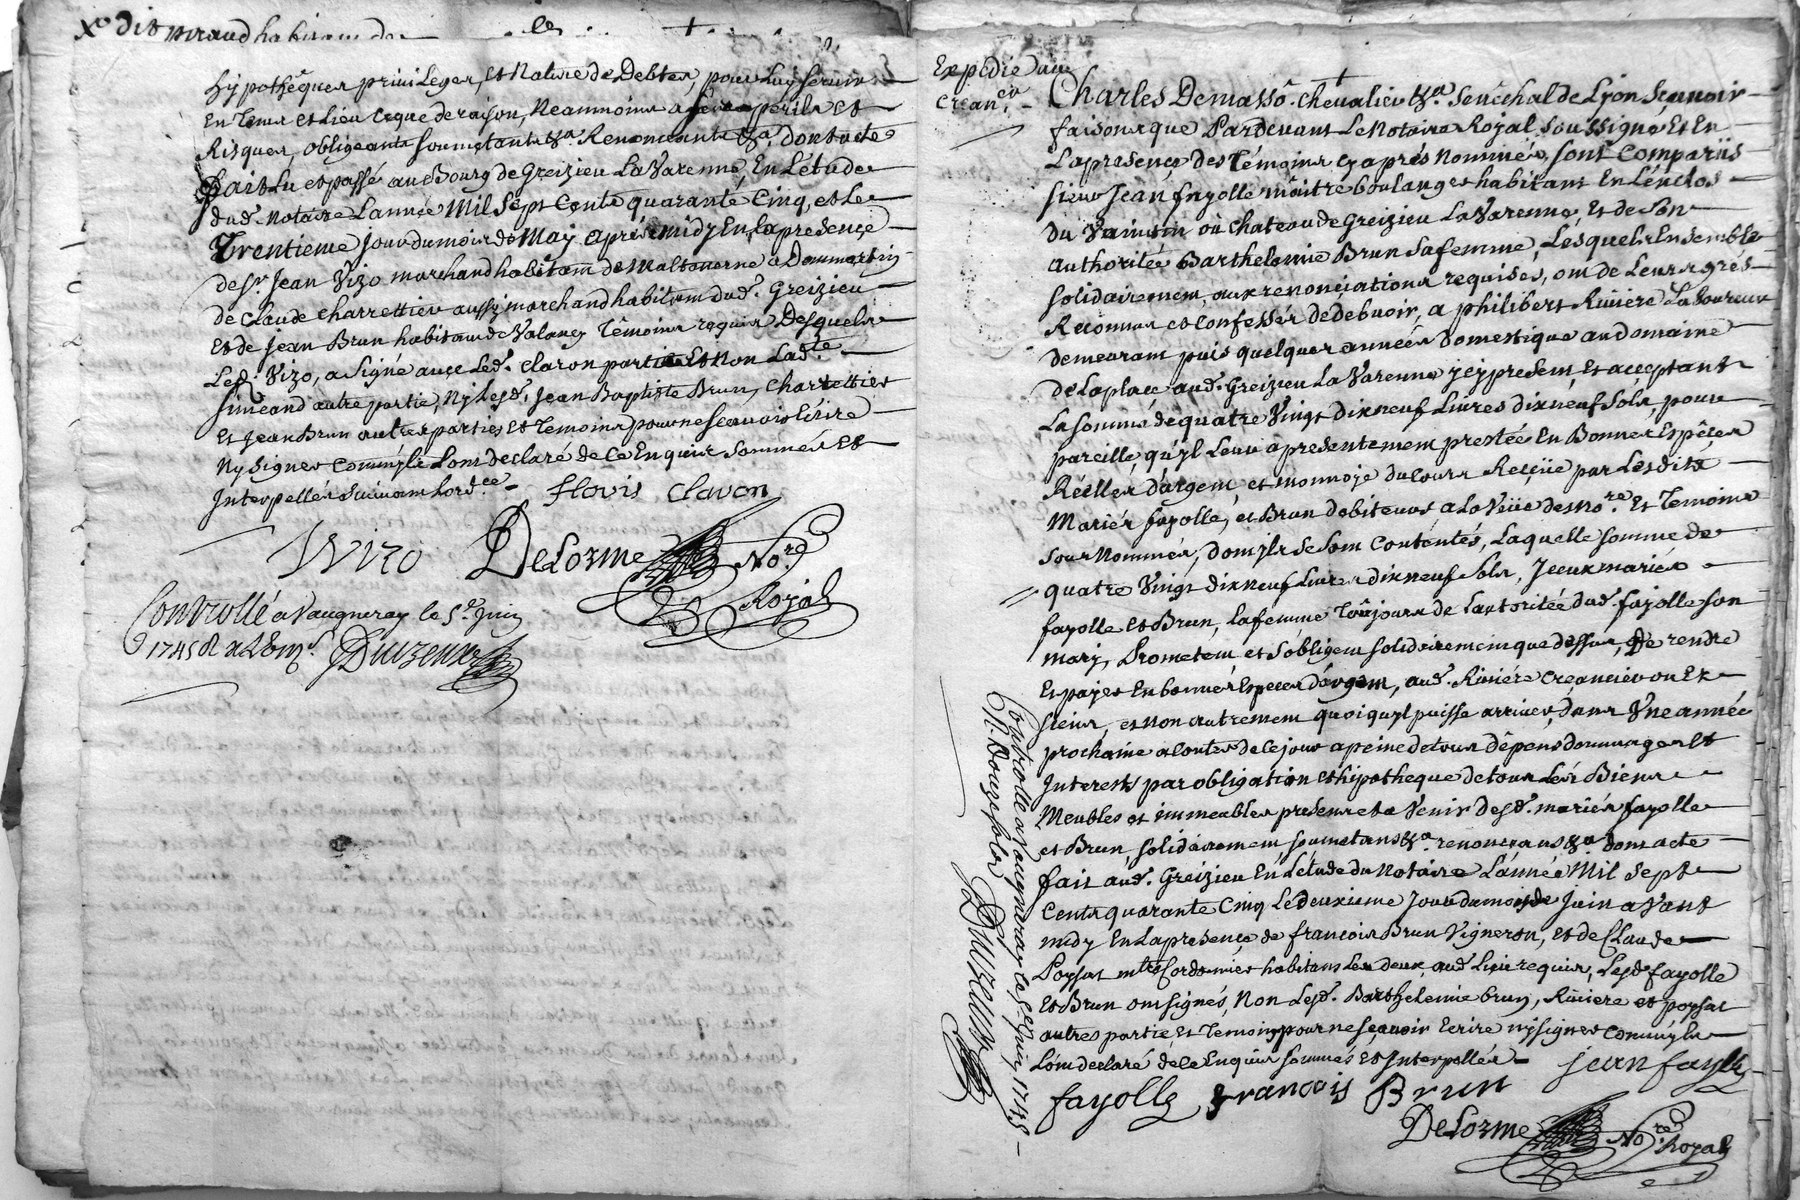 hypothéques privileges, et Nature de Debtes, pour luy servir
En Tems et Lieu Ce que de raison, Neanmoins a ses perils et
Risques, obligeants soumetants &a. Renonceants &a. Dont acte
fait Lu et passé au Bourg de Greizieu La Varenne, En L'étude
dud. Notaire L'année Mil Sept Cents quarante Cinq, et Le
Trentieme jour du mois de May aprés midy En la presence
de Sr. Jean Vizo marchand habitant de Maltaverne a Dommartin
de Claude Charrettier aussy marchand habitant dud. Greizieu
Et de Jean Brun habitant de Valancy Témoins requis Desquels
Led. Vizo, a Signé avec Led. Claron partie Et Non Lad.te
Simeand autre partie, Ny Lesd. Jean Baptiste Brun, Charrettier
et Jean Brun autres parties et Temoins pour ne scavoir Ecrire
Ny Signer Comm'ils L'ont declaré de Ce Enquis Sommés et
Interpellés Suivant L'ord.ce
floris Claron
Vizo Delorme No.re Royal
Controllé a Vaugneray le 5.e Juin
1745
Duizeux
Expedié au
Crean.er
Charles Demasso chevalier &a. Senéchal de Lyon Scavoir
faisons que Pardevant Le Notaire Royal, Soussigné Et En
La presence des Témoins cy aprés Nommés, sont Comparûs
sieur Jean fayolle mâitre boulanger habitant En L'enclos
du Vaintain ou Chateau de Greizieu La Varenne, et de son
authoritée Barthelemie Brun sa femme, Lesquels Ensemble
solidairement, aux renonciations requises, ont de Leurs grés
Reconnus et Confessés de debvoir, a philibert Riviere Laboureur
demeurant puis quelques années Domestique au Domaine
de Laplace aud. Greizieu La Varenne jcy present, Et acceptant
La somme de quatre Vingt dix neuf Livres dix neuf Sols, pour
pareille, qu'yl Leur a presentement prestée En Bonnes Espéces
Réelles d'argent, et monnoye du Cours Reçüe par Lesdits
Mariés fayolle, et Brun debiteurs a La Veüe des No.re Et Temoins
sous Nommés, dont jls se sont Contentés, Laquelle somme de
quatre Vingt dix neuf Livres dix neuf Sols, Jceux mariés
fayolle et Brun, La femme Toûjours de L'autoritée dud. fayolle son
mary, Prometent et s'obligent solidairement que dessus, De rendre
Et payer En bonnes Especes d'argent, aud. Riviére Creancier ou Es
siens, et non autrement quoi qu'yl puisse arriver, dans Vne année
prochaine a Conter de Ce jour a peine de tous dépens dommages et
Interests par obligation et hipotheque de tous Leurs Biens
Meubles et immeubles presents et a Venir desd. mariés fayolle
et Brun, solidairement soumetans &a. renonceans &a dont acte
fait aud. Greizieu En L'étude du Notaire L'année Mil Sept
Cents quarante Cinq Le deuxieme Jour du mois de Juin avant
midy En La presence de francois Brun Vigneron, et de Claude
Poysat m.tre Cordonnier habitans Les deux, aud. Lieu requis, Lesd. fayolle
et Brun ont signés, Non Lesd. Barthelemie brun, Riviere et poysat
autres partie, et Temoin, pour ne sçavoir Ecrire ny signer Comm'yls
L'ont declaré de Ce Enquis sommés et Interpellés
jean fayolle
fayolle francois Brun
Delorme No.re Royal
Controllé a Vaugneray le 5e Juin 1745
R. Douze sols
Duizeux